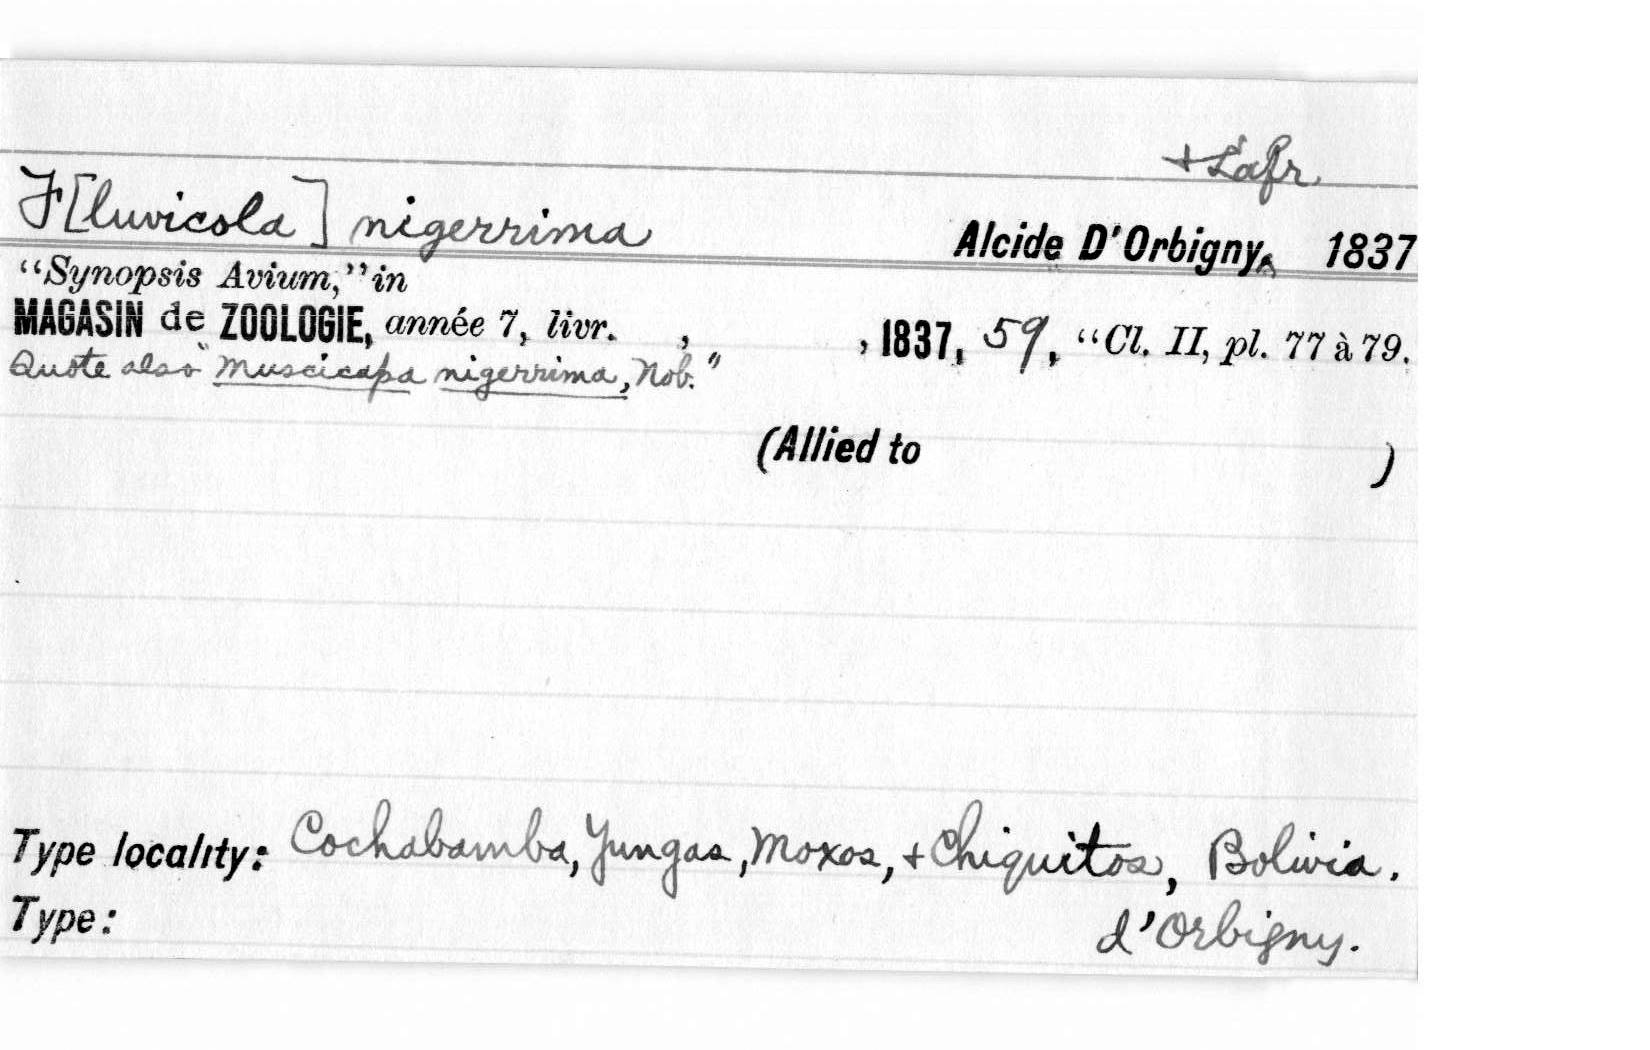 + Lafr
F[luvicola] nigerrima Alcide D'Orbigny, 1837
“Synopsis Avium,” in
MAGASIN de ZOOLOGIE, année 7, livr. , , 1837, 59, “Cl. II, pl. 77 à 79.
Quote also “Muscicapa nigerrima, Nob.”
(Allied to )
Type locality: Cochabamba, Yungas, Moxos, + Chiquitos, Bolivia.
Type: d'Orbigny.